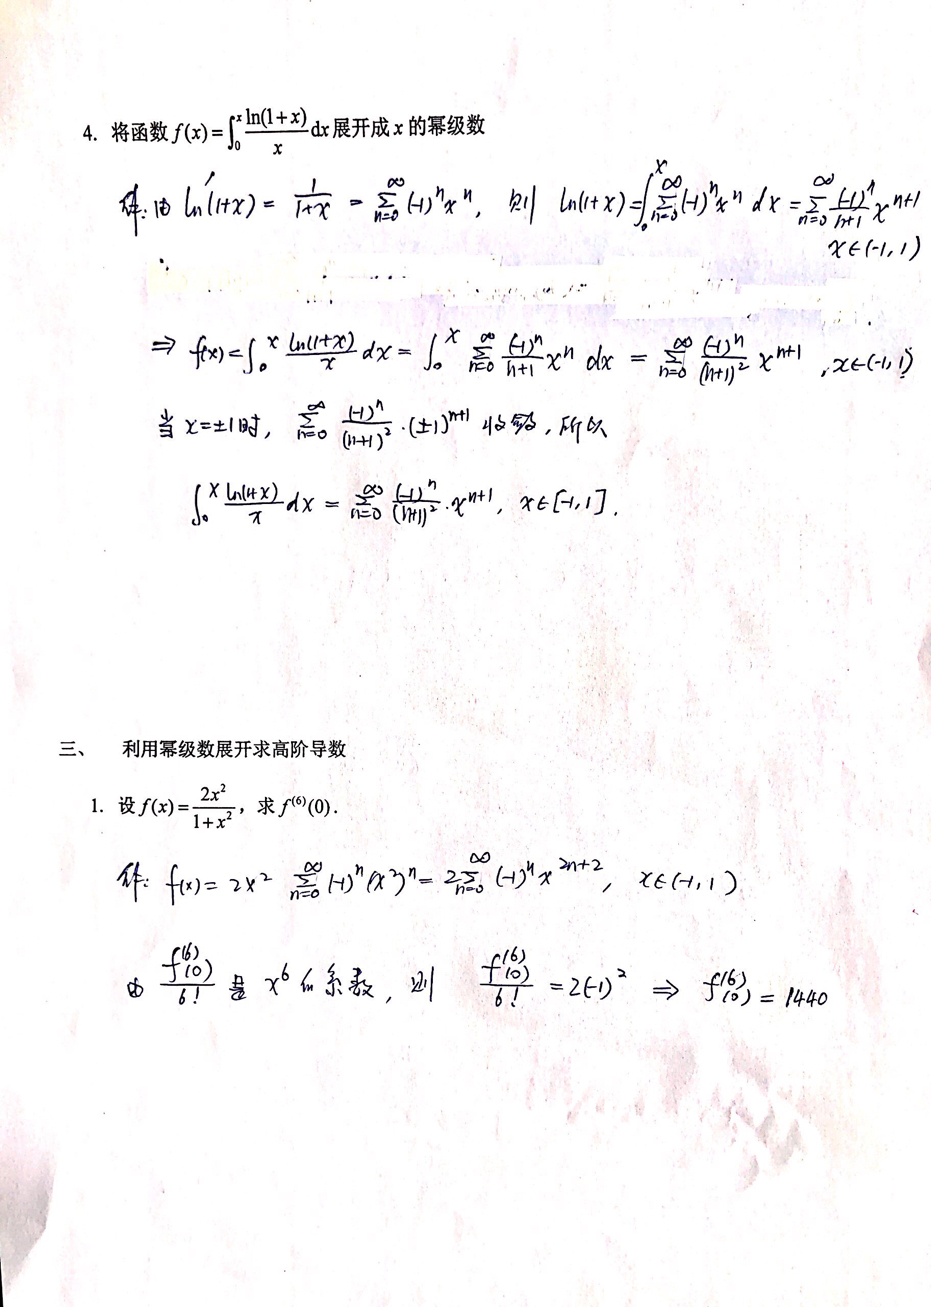 4. 将函数 f(x)=∫₀ˣ ln(1+x)/x dx 展开成 x 的幂级数
解:由 ln'(1+x) = 1/(1+x) = ∑_{n=0}^{∞} (-1)ⁿxⁿ, 则 ln(1+x)=∫₀ˣ ∑_{n=0}^{∞} (-1)ⁿxⁿ dx = ∑_{n=0}^{∞} (-1)ⁿ/(n+1) xⁿ⁺¹
x∈(-1,1)
⇒ f(x)=∫₀ˣ ln(1+x)/x dx = ∫₀ˣ ∑_{n=0}^{∞} (-1)ⁿ/(n+1) xⁿ dx = ∑_{n=0}^{∞} (-1)ⁿ/(n+1)² xⁿ⁺¹ , x∈(-1,1)
当 x=±1时, ∑_{n=0}^{∞} (-1)ⁿ/(n+1)² ·(±1)ⁿ⁺¹ 收敛, 所以
∫₀ˣ ln(1+x)/x dx = ∑_{n=0}^{∞} (-1)ⁿ/(n+1)² ·xⁿ⁺¹, x∈[-1,1].
三、 利用幂级数展开求高阶导数
1. 设 f(x)=2x²/(1+x²), 求 f⁽⁶⁾(0).
解: f(x)= 2x² ∑_{n=0}^{∞} (-1)ⁿ(x²)ⁿ = 2∑_{n=0}^{∞} (-1)ⁿx²ⁿ⁺², x∈(-1,1)
由 f⁽⁶⁾(0)/6! 是 x⁶的系数, 则 f⁽⁶⁾(0)/6! = 2(-1)² ⇒ f⁽⁶⁾(0) = 1440